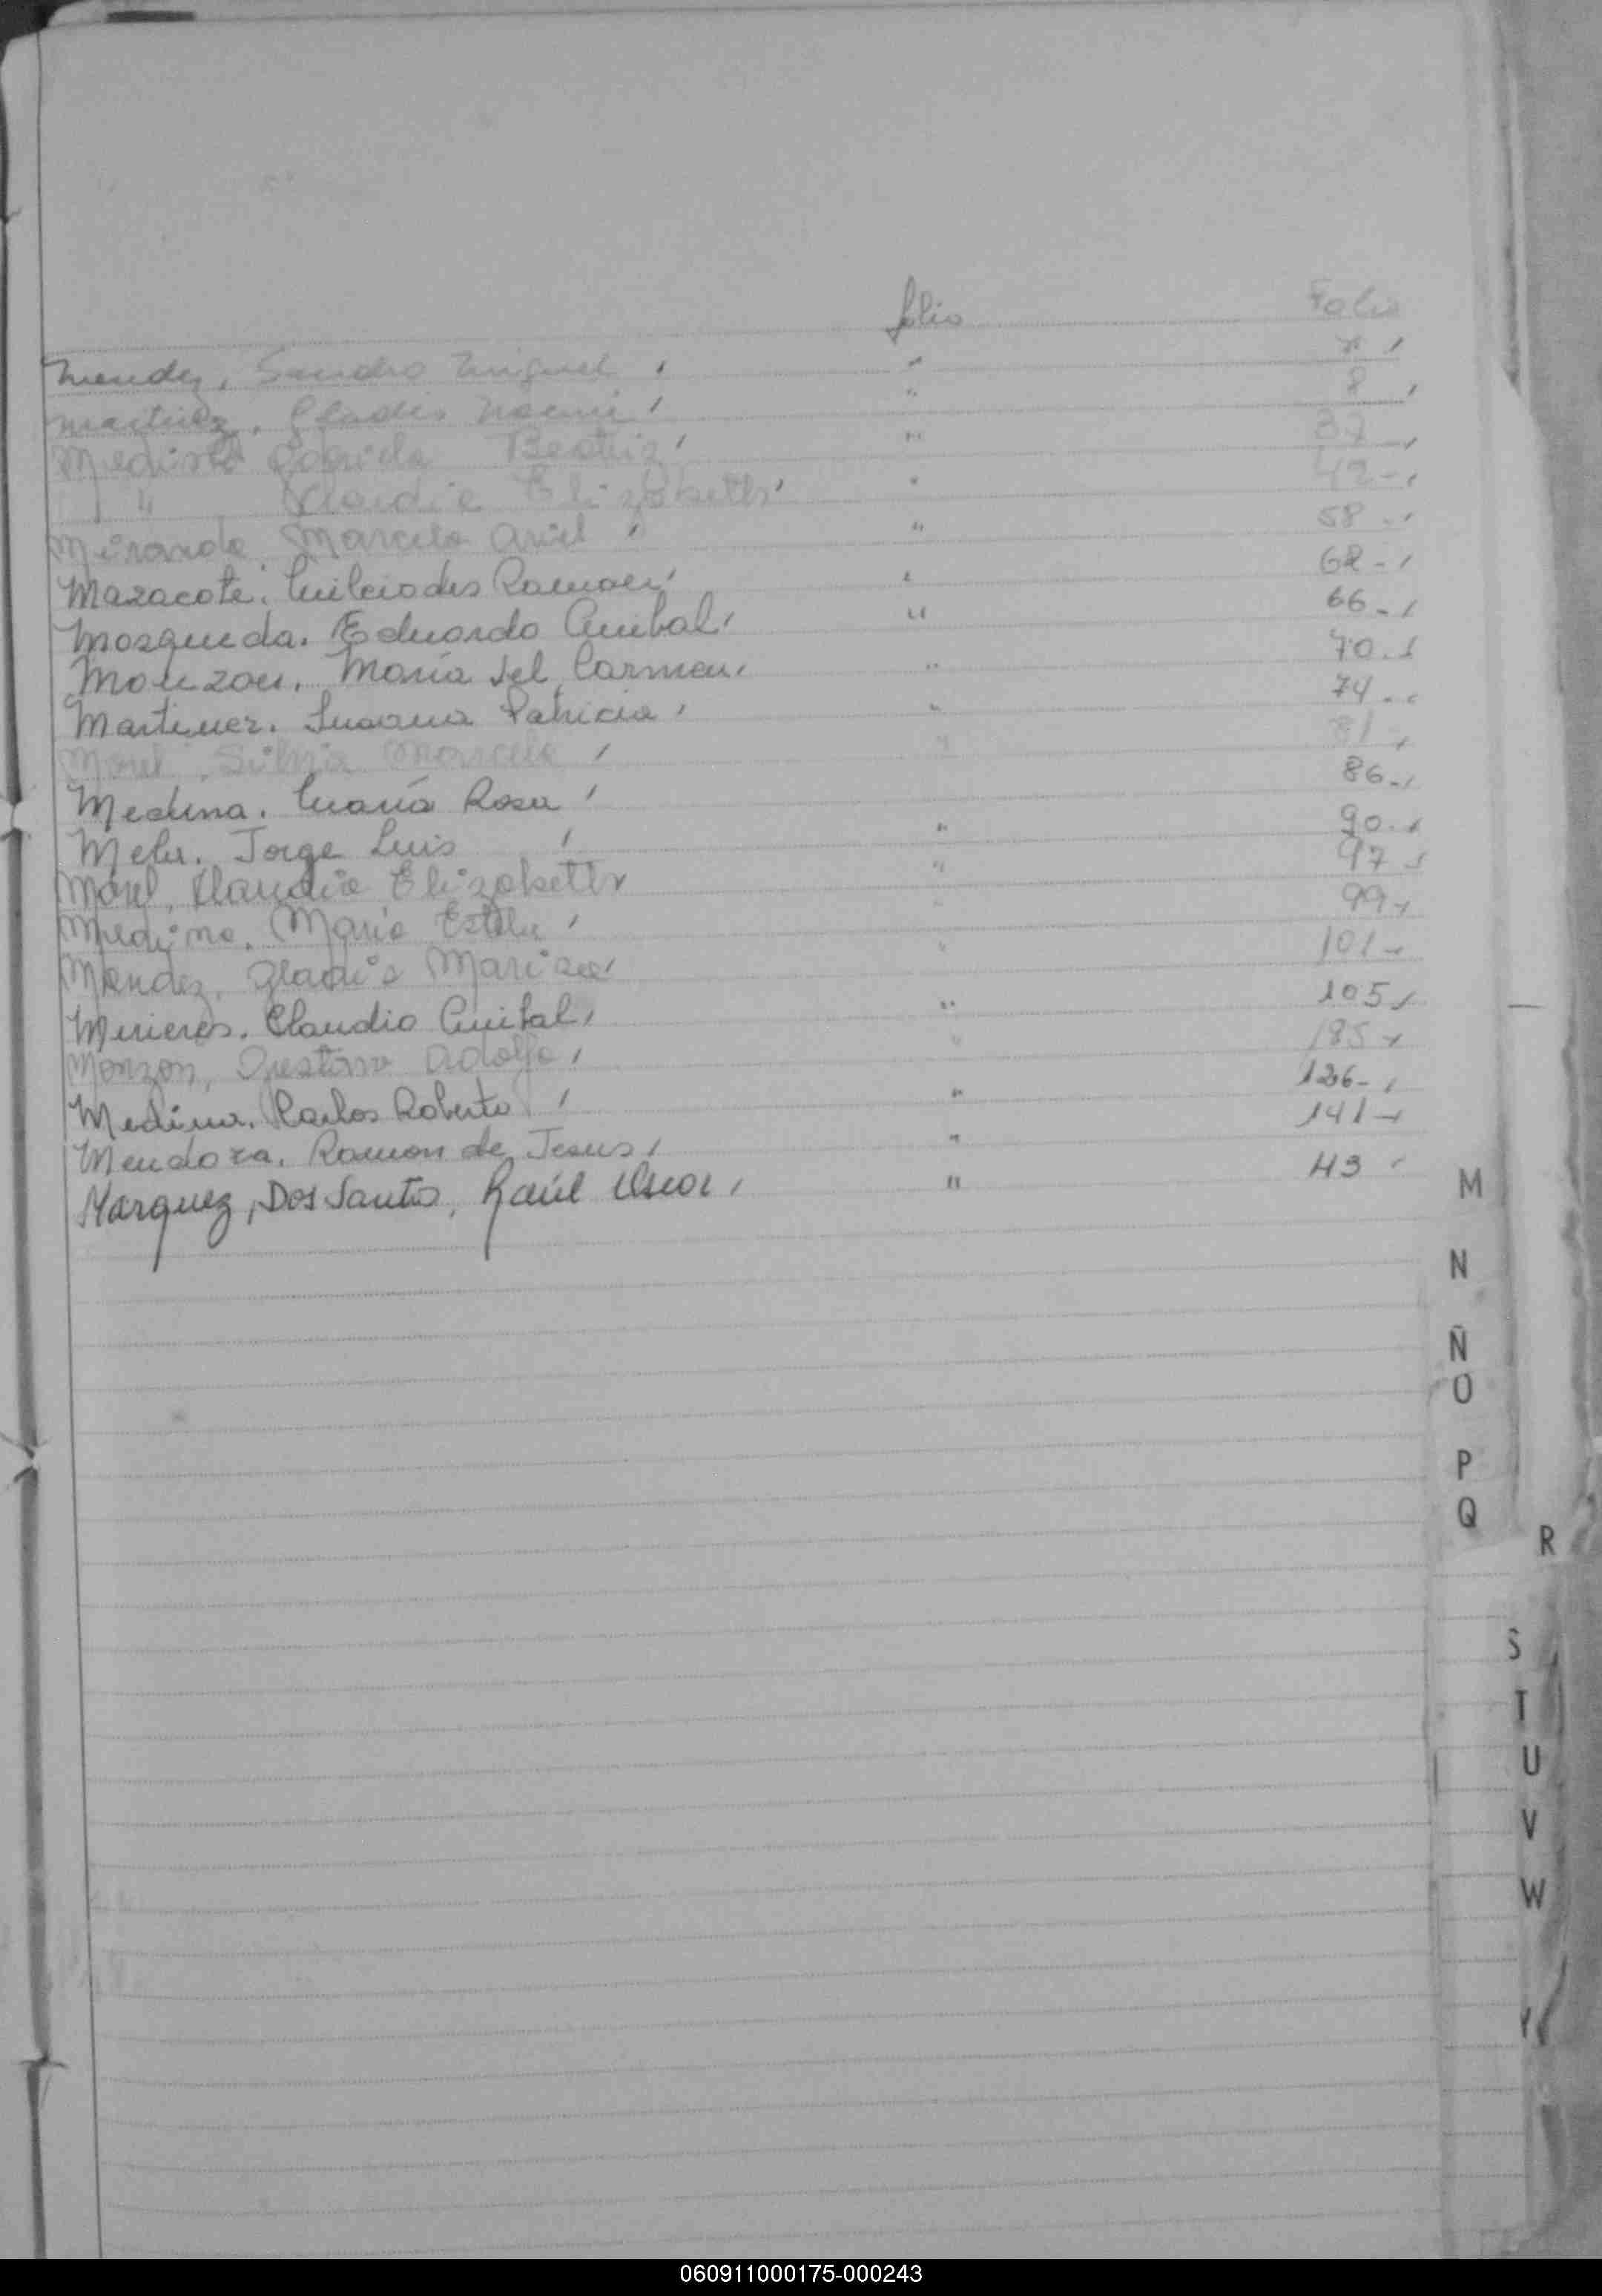 folio Folio
Mendez, Sandro Miguel, " 7,
Martinez, Gladis Noemi, " 8,
Beatriz, " 37-,
" Claudia Elizabeth, " 42-,
Miranda, Marcelo Ariel, " 58-,
Mazacote, Milciades Ramon, " 62-,
Mosqueda. Eduardo Anibal, " 66-,
Monzon, María del Carmen, " 70-,
Martinez. Susana Patricia, " 74-,
Morel, Silvia Marcela, " 81,
Medina. María Rosa, 86-,
Jorge Luis, " 90-,
Morel, Claudia Elizabeth, " 97,
Medina, Maria Estela, " 99,
Mendez, Gladis Marisa, " 101,
Mereles. Claudio Anibal, " 105,
Monzon, Gustavo Adolfo, " 185,
Medina, Carlos Roberto, " 126-,
Mendoza. Ramon de Jesus, " 141,
Marquez, Dos Santos, Raúl Oscar, " 43,
M
N
Ñ
O
P
Q
R
S
T
U
V
W
Y
060911000175-000243